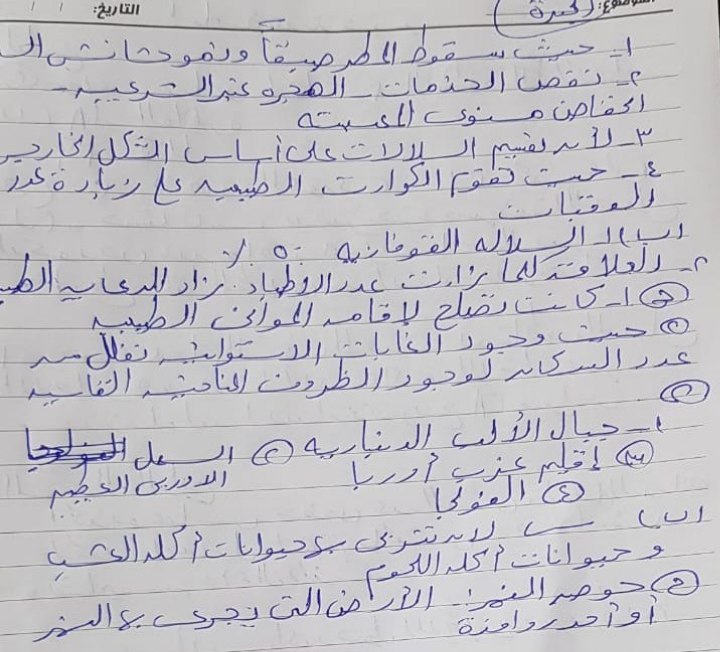 الموضوع: الجيزة التاريخ: / /
١- حيث سقوط المطر صيفاً ونمو حشائش
٢- نقص الخدمات - الهجره غير الشرعيه -
انخفاض مستوى المعيشه
٣- لأنه تقسيم السلالات على أساس الشكل الخارجى
٤- حيث تقوم الكوارث الطبيعيه على زيادة عدد
الوفيات
(ب) ١- السلاله القوقازيه ٥٠٪
٢- العلاقه كلما زادت عدد الأطباء زاد الرعايه
(ج) ١- كانت تصلح لإقامه الموانئ الطبيعيه
٢ حيث وجود الغابات الاستوائيه تقلل من
عدد السكان لوجود الظروف المناخيه القاسيه
٢
١- جبال الألب الدينارية ٢ السهل
الاوربى العظيم
٣ إقليم غرب أوربا
٤ الفولجا
(ب) لانه تتربى به حيوانات أكله العشب
وحيوانات أكله اللحوم
حوض النهر: الأرض التى يجرى به النهر
أو أحد روافدة